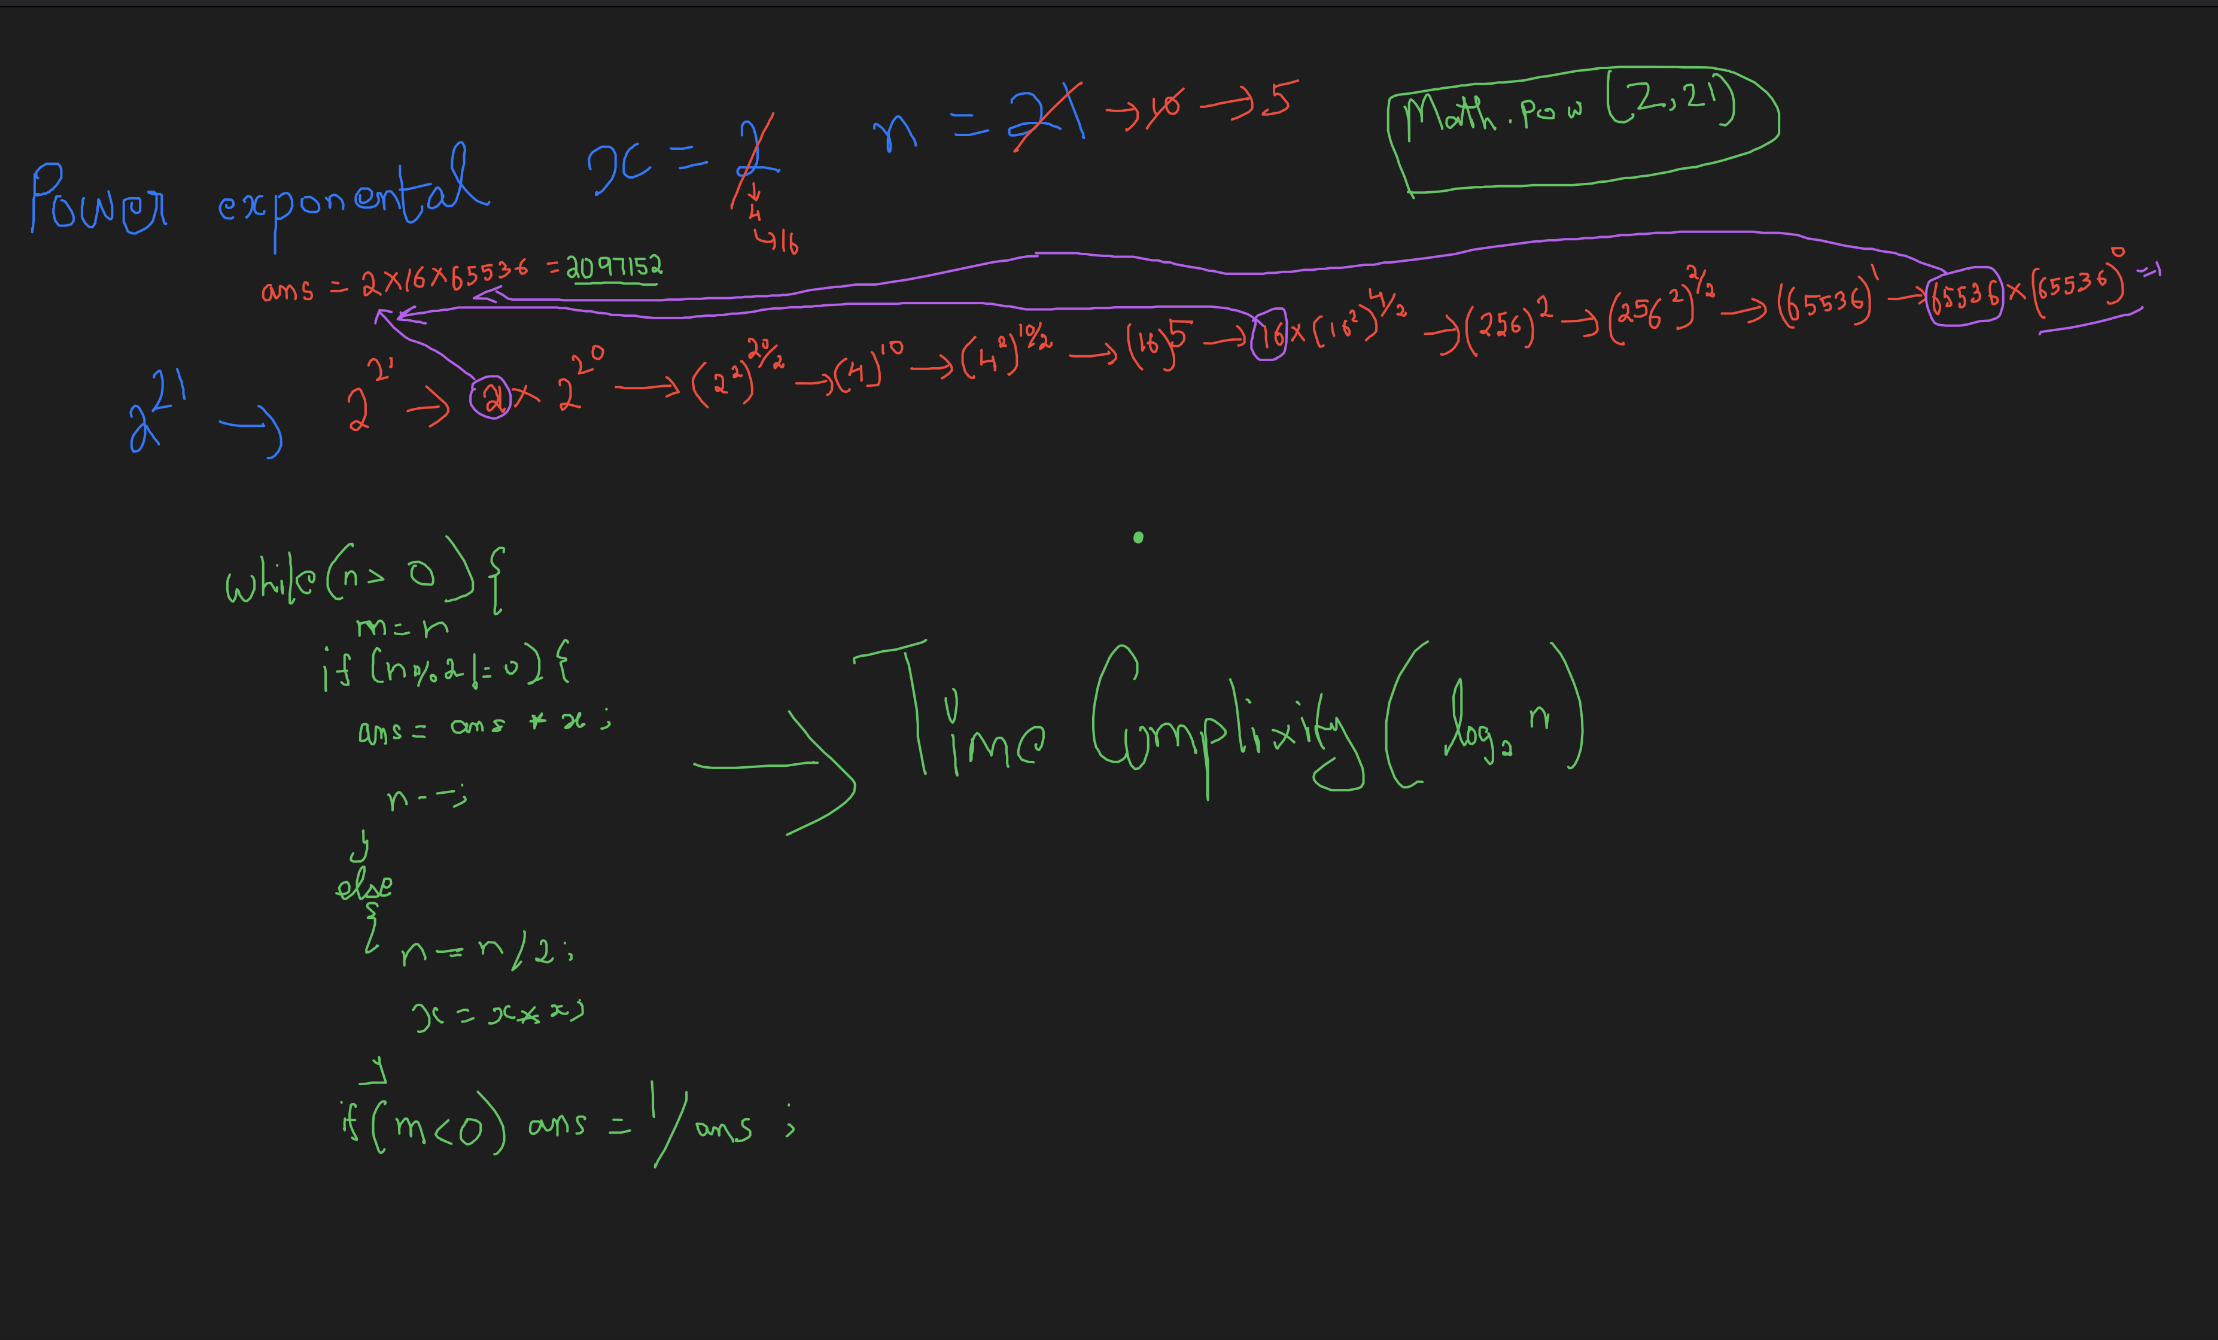 Power exponental x = 2 → 4 → 16 n = 21 → 10 → 5
Math.pow (2,21)
ans = 2×16×65536 = 2097152
2^21 → 2^21 → 2 × 2^20 → (2^2)^20/2 → (4)^10 → (4^2)^10/2 → (16)^5 → 16 × (16^2)^4/2 → (256)^2 → (256^2)^2/2 → (65536)^1 → 65536 × (65536)^0 = 1
while(n > 0){
m = n
if (n % 2 != 0) {
ans = ans * x ;
n--;
}
else
{
n = n/2 ;
x = x * x ;
}
if(m<0) ans = 1/ans ;
→ Time Complixity (log₂ n)